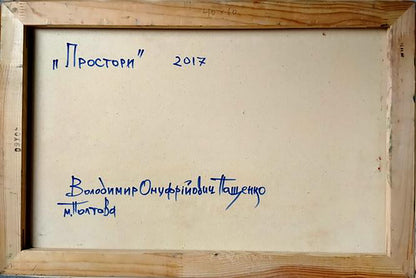 „Простори" 2017
Володимир Онуфрійович Пащенко
м.Полтава